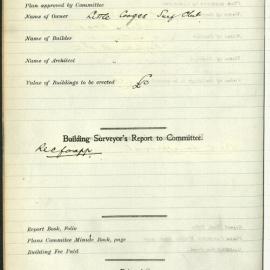 Plan approved by Committee
Name of Owner Little Coogee Surf Club
Name of Builder "
Name of Architect "
Value of Buildings to be erected £
Building Surveyor's Report to Committee.
Rec for app
Report Book, Folio
Plans Committee Minute Book, page
Building Fee Paid